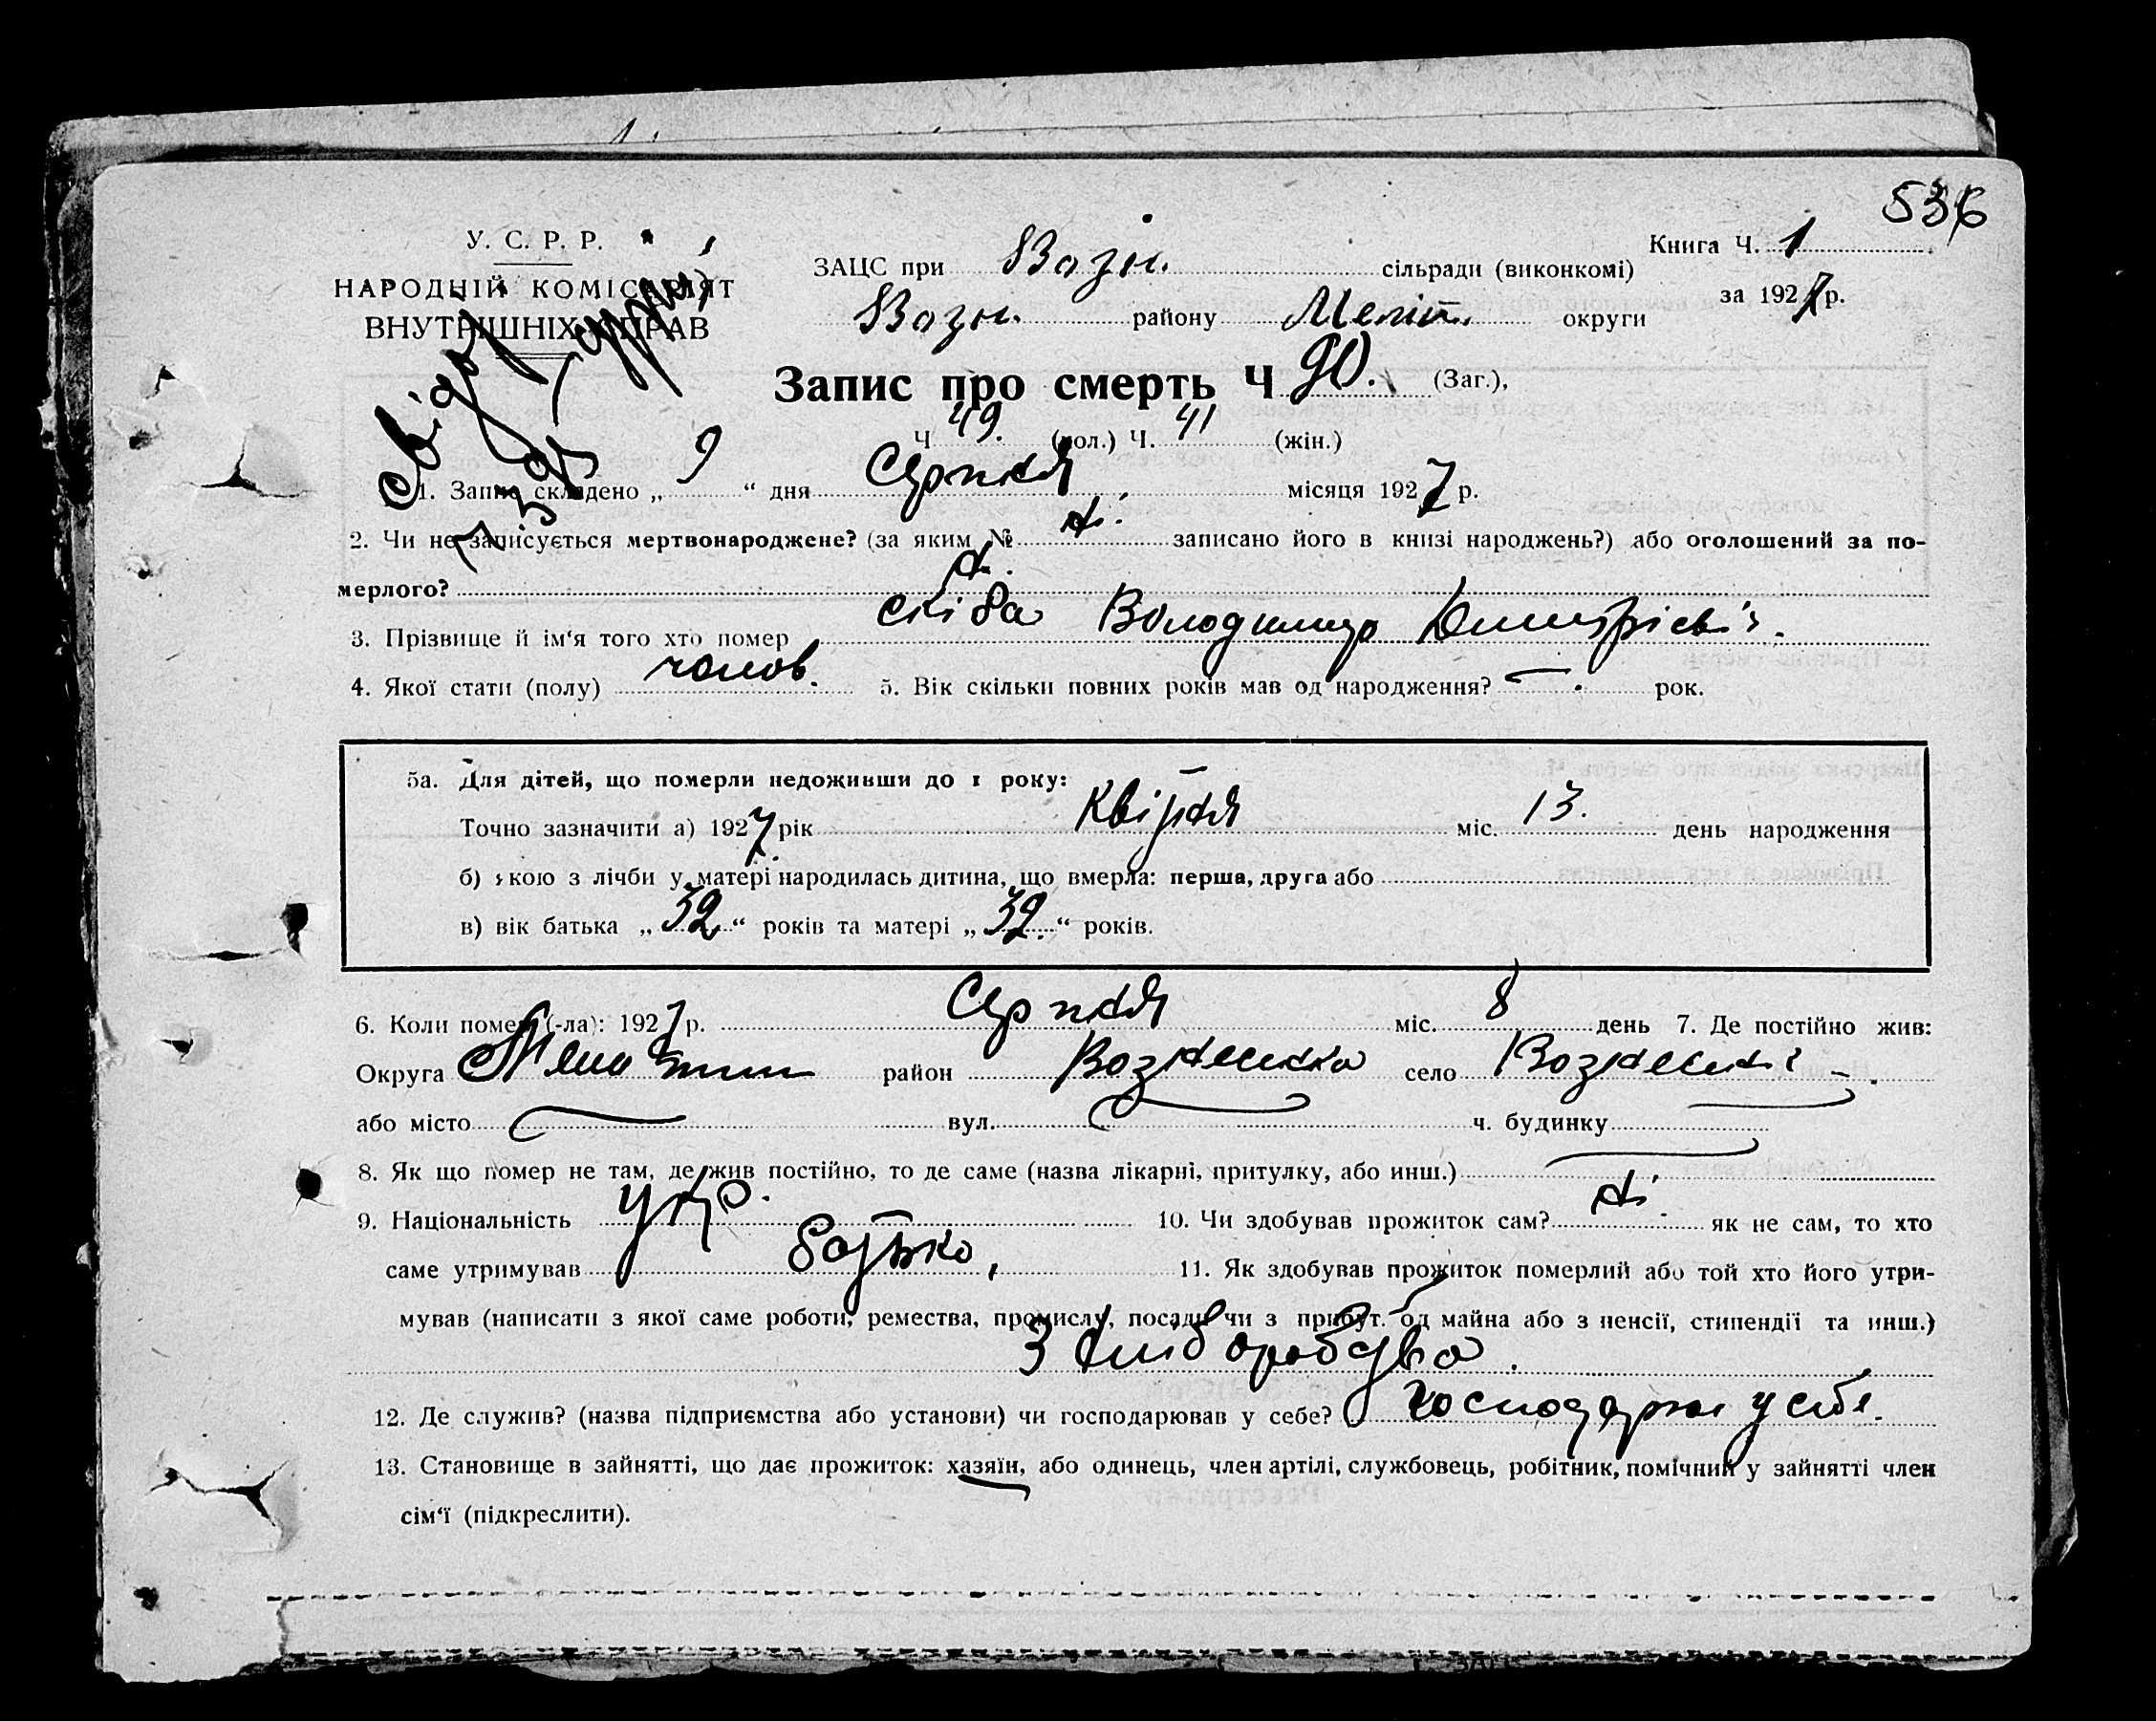 536
У. С. Р. Р.
НАРОДНІЙ КОМІСАРІЯТ
ВНУТРІШНІХ СПРАВ
ЗАЦС при Возн. сільради (виконкомі)
Возн. району Меліт. округи
Книга Ч. 1
за 1927 р.
Запис про смерть Ч 90. (Заг.),
Ч 49. (чол.) Ч. 41 (жін.)
1. Запис складено „ 9 “ дня Серпня місяця 1927 р.
2. Чи не записується мертвонароджене? (за яким № ні. записано його в книзі народжень?) або оголошений за по-
мерлого? ні.
3. Прізвище й ім‘я того хто помер Скіба Володимир Дмитрієвіч.
4. Якої стати (полу) чолов. 5. Вік скільки повних років мав од народження? — . рок.
5а. Для дітей, що померли недоживши до 1 року:
Точно зазначити а) 1927 рік Квітня міс. 13. день народження
б) якою з лічби у матері народилась дитина, що вмерла: перша, друга або
в) вік батька „ 32 “ років та матері „ 32. “ років.
6. Коли помер (-ла): 1927 р. Серпня міс. 8 день 7. Де постійно жив:
Округа район Вознесенка село Вознесенкі
або місто вул. ч. будинку
8. Як що помер не там, де жив постійно, то де саме (назва лікарні, притулку, або инш.)
9. Національність укр. 10. Чи здобував прожиток сам? ні. як не сам, то хто
саме утримував батько, 11. Як здобував прожиток померлий або той хто його утри-
мував (написати з якої саме роботи, ремества, промислу, посади чи з прибут. од майна або з пенсії, стипендії та инш.)
З хліборобства.
12. Де служив? (назва підприємства або установи) чи господарював у себе? господарює у себе.
13. Становище в зайнятті, що дає прожиток: хазяїн, або одинець, член артілі, службовець, робітник, помічний у зайнятті член
сім‘ї (підкреслити).